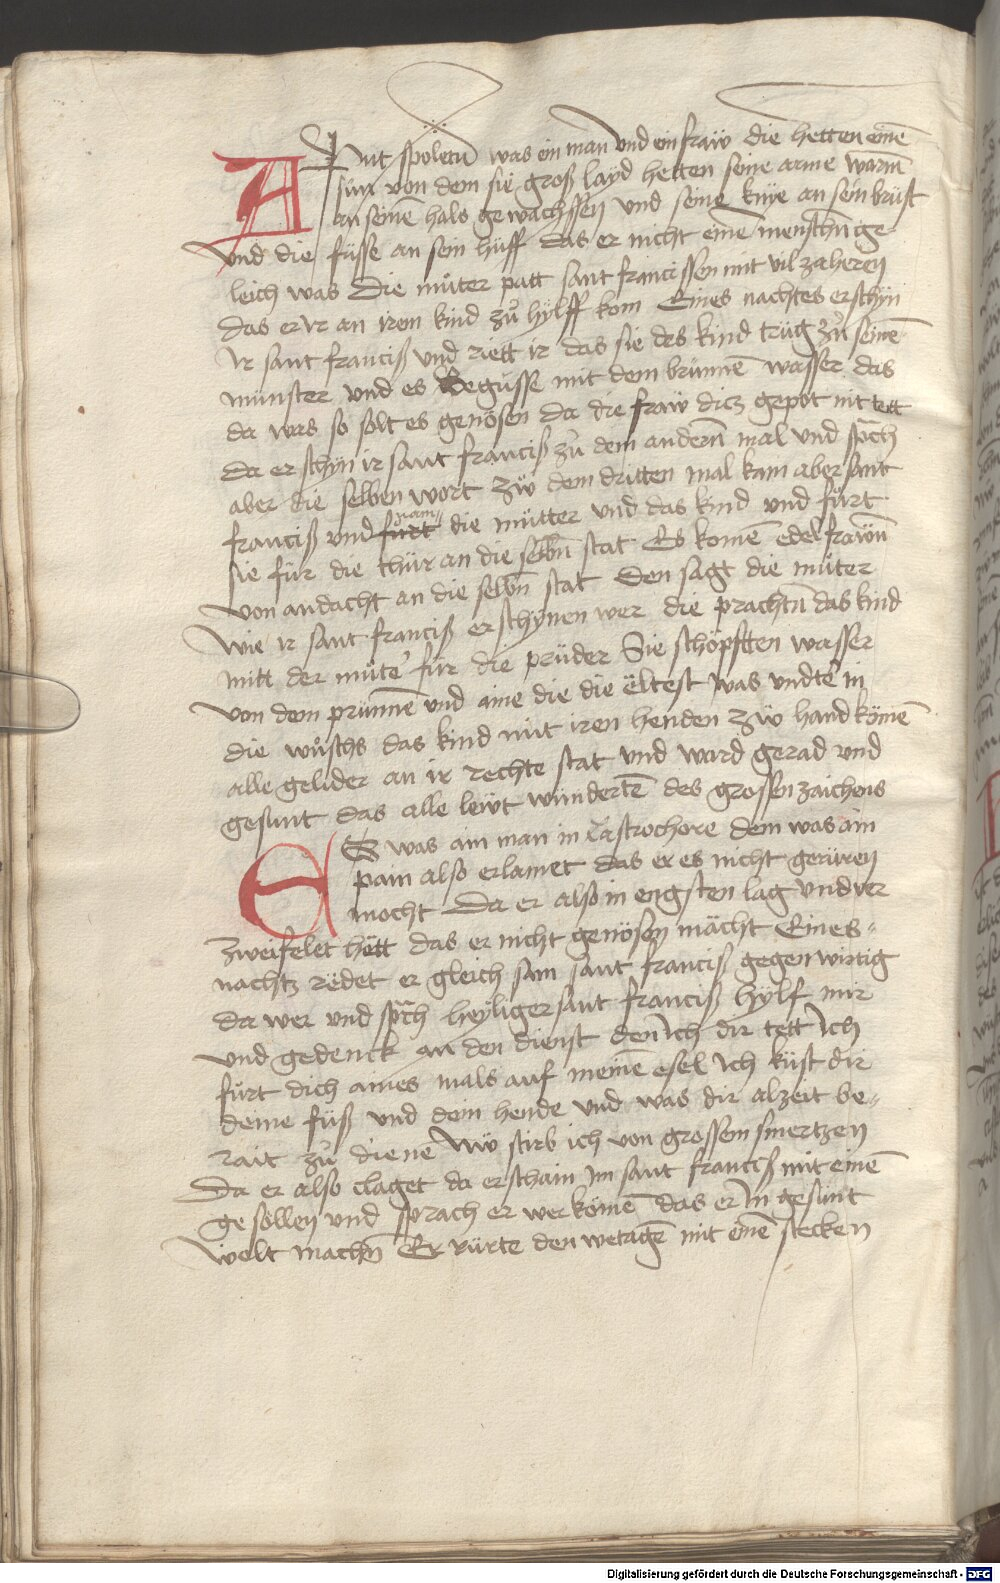 APut spoletū was ein man vnd ein fraw die hetten einē
sun von dem sie groß layd hetten seine arme warnn
an seinē hals gewachssen vnd seine knye an sein brust
vnd die füsse an sein hüff das er nicht eine menschn ge
leich was Die müter patt sant francissen mit vil zaheren
das er ir an irem kind zů hylff kom Eines nachtes erschyn
Ir sant franciß vnd riett ir das sie des kind trüg zů seinē
münster vnd es Begüsse mit dem brünnē wasser das
da was so solt es genösen da die fraw dicz gepot nit tett
Da er schyn ir sant franciß zů dem andern mal vnd sp̄ch
aber die selben wort zw dem dritten mal kam aber sant
franciß vnd nam die mütter vnd das kind vnd fürt
sie für die thür an die selbn̄ stat Es komē edel frawn̄
von andacht an die selbn̄ stat Den sagt die müter
wie ir sant franciß erschynen wer die prachtn̄ das kind
mitt der müte für die prüder Sie schöpften wasser
von dem prunnē vnd aine die die ëltest was vndte in
die wüschs das kind mit iren henden zw hand kömē
alle gelider an ir rechte stat vnd ward gerad vnd
gesunt das alle lewt wündertē des grossen zaichens
ES was ain man in Castrochore dem was ain
pain also erlamet das er es nicht gerüren
mocht Da er also in engsten lag vnd ver
zweifelet hett das er nicht genösen mächt Eines
nachtz rëdet er gleich sam sant franciß gegenwirtig
da wer vnd sp̄ch heyliger sant franciß hylf mir
vnd gedenck an den dienst den ich dir tett Ich
fürt dich aines mals auf meinē esel Ich küst dir
deine füß vnd dein hende vnd was dir alzeit be
rait zů dienē Nw stirb ich von grossem smertzen
Da er also claget da erschain Im sant franciß mit einē
gesöllen vnd sprach er wer kömē das er In gesunt
wolt machn̄ Er rürte den wetagē mit einē stecken
Digitalisierung gefördert durch die Deutsche Forschungsgemeinschaft - DFG